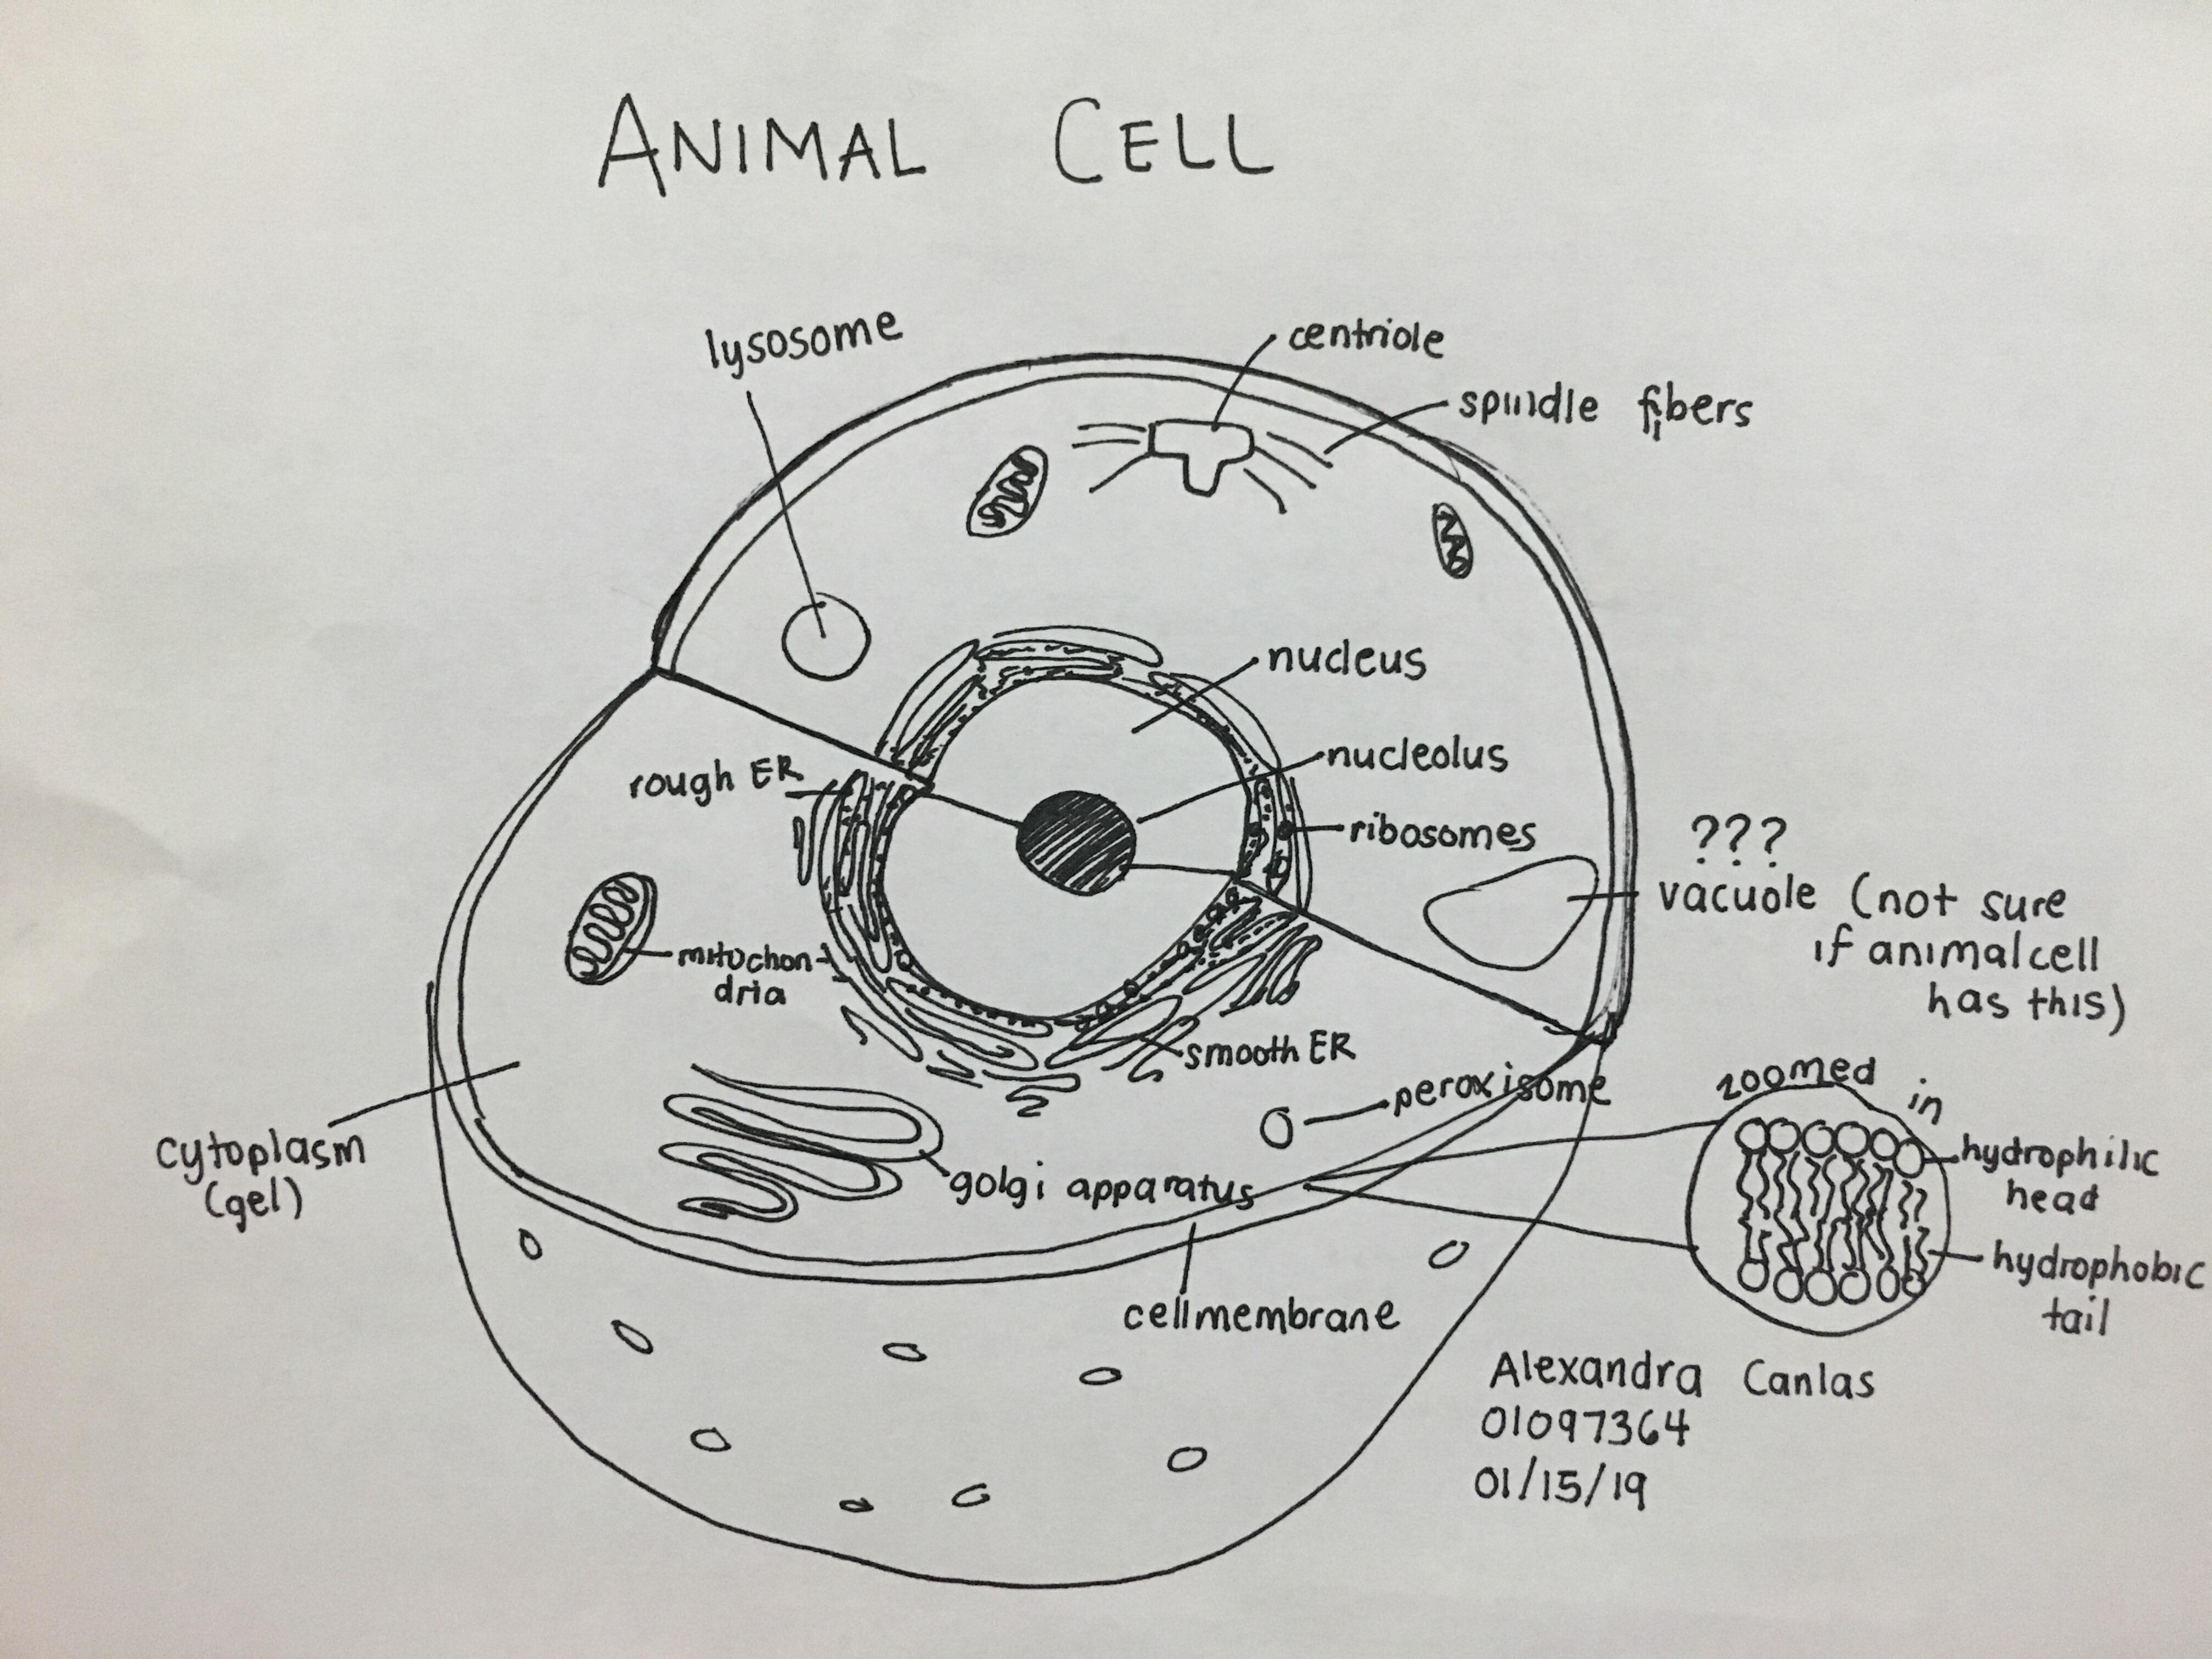 ANIMAL CELL
lysosome
centriole
spindle fibers
nucleus
nucleolus
rough ER
ribosomes
???
vacuole (not sure
if animal cell
has this)
mitochon-
dria
smooth ER
peroxisome
zoomed in
cytoplasm
(gel)
golgi apparatus
hydrophilic
head
hydrophobic
tail
cell membrane
Alexandra Canlas
01097364
01/15/19